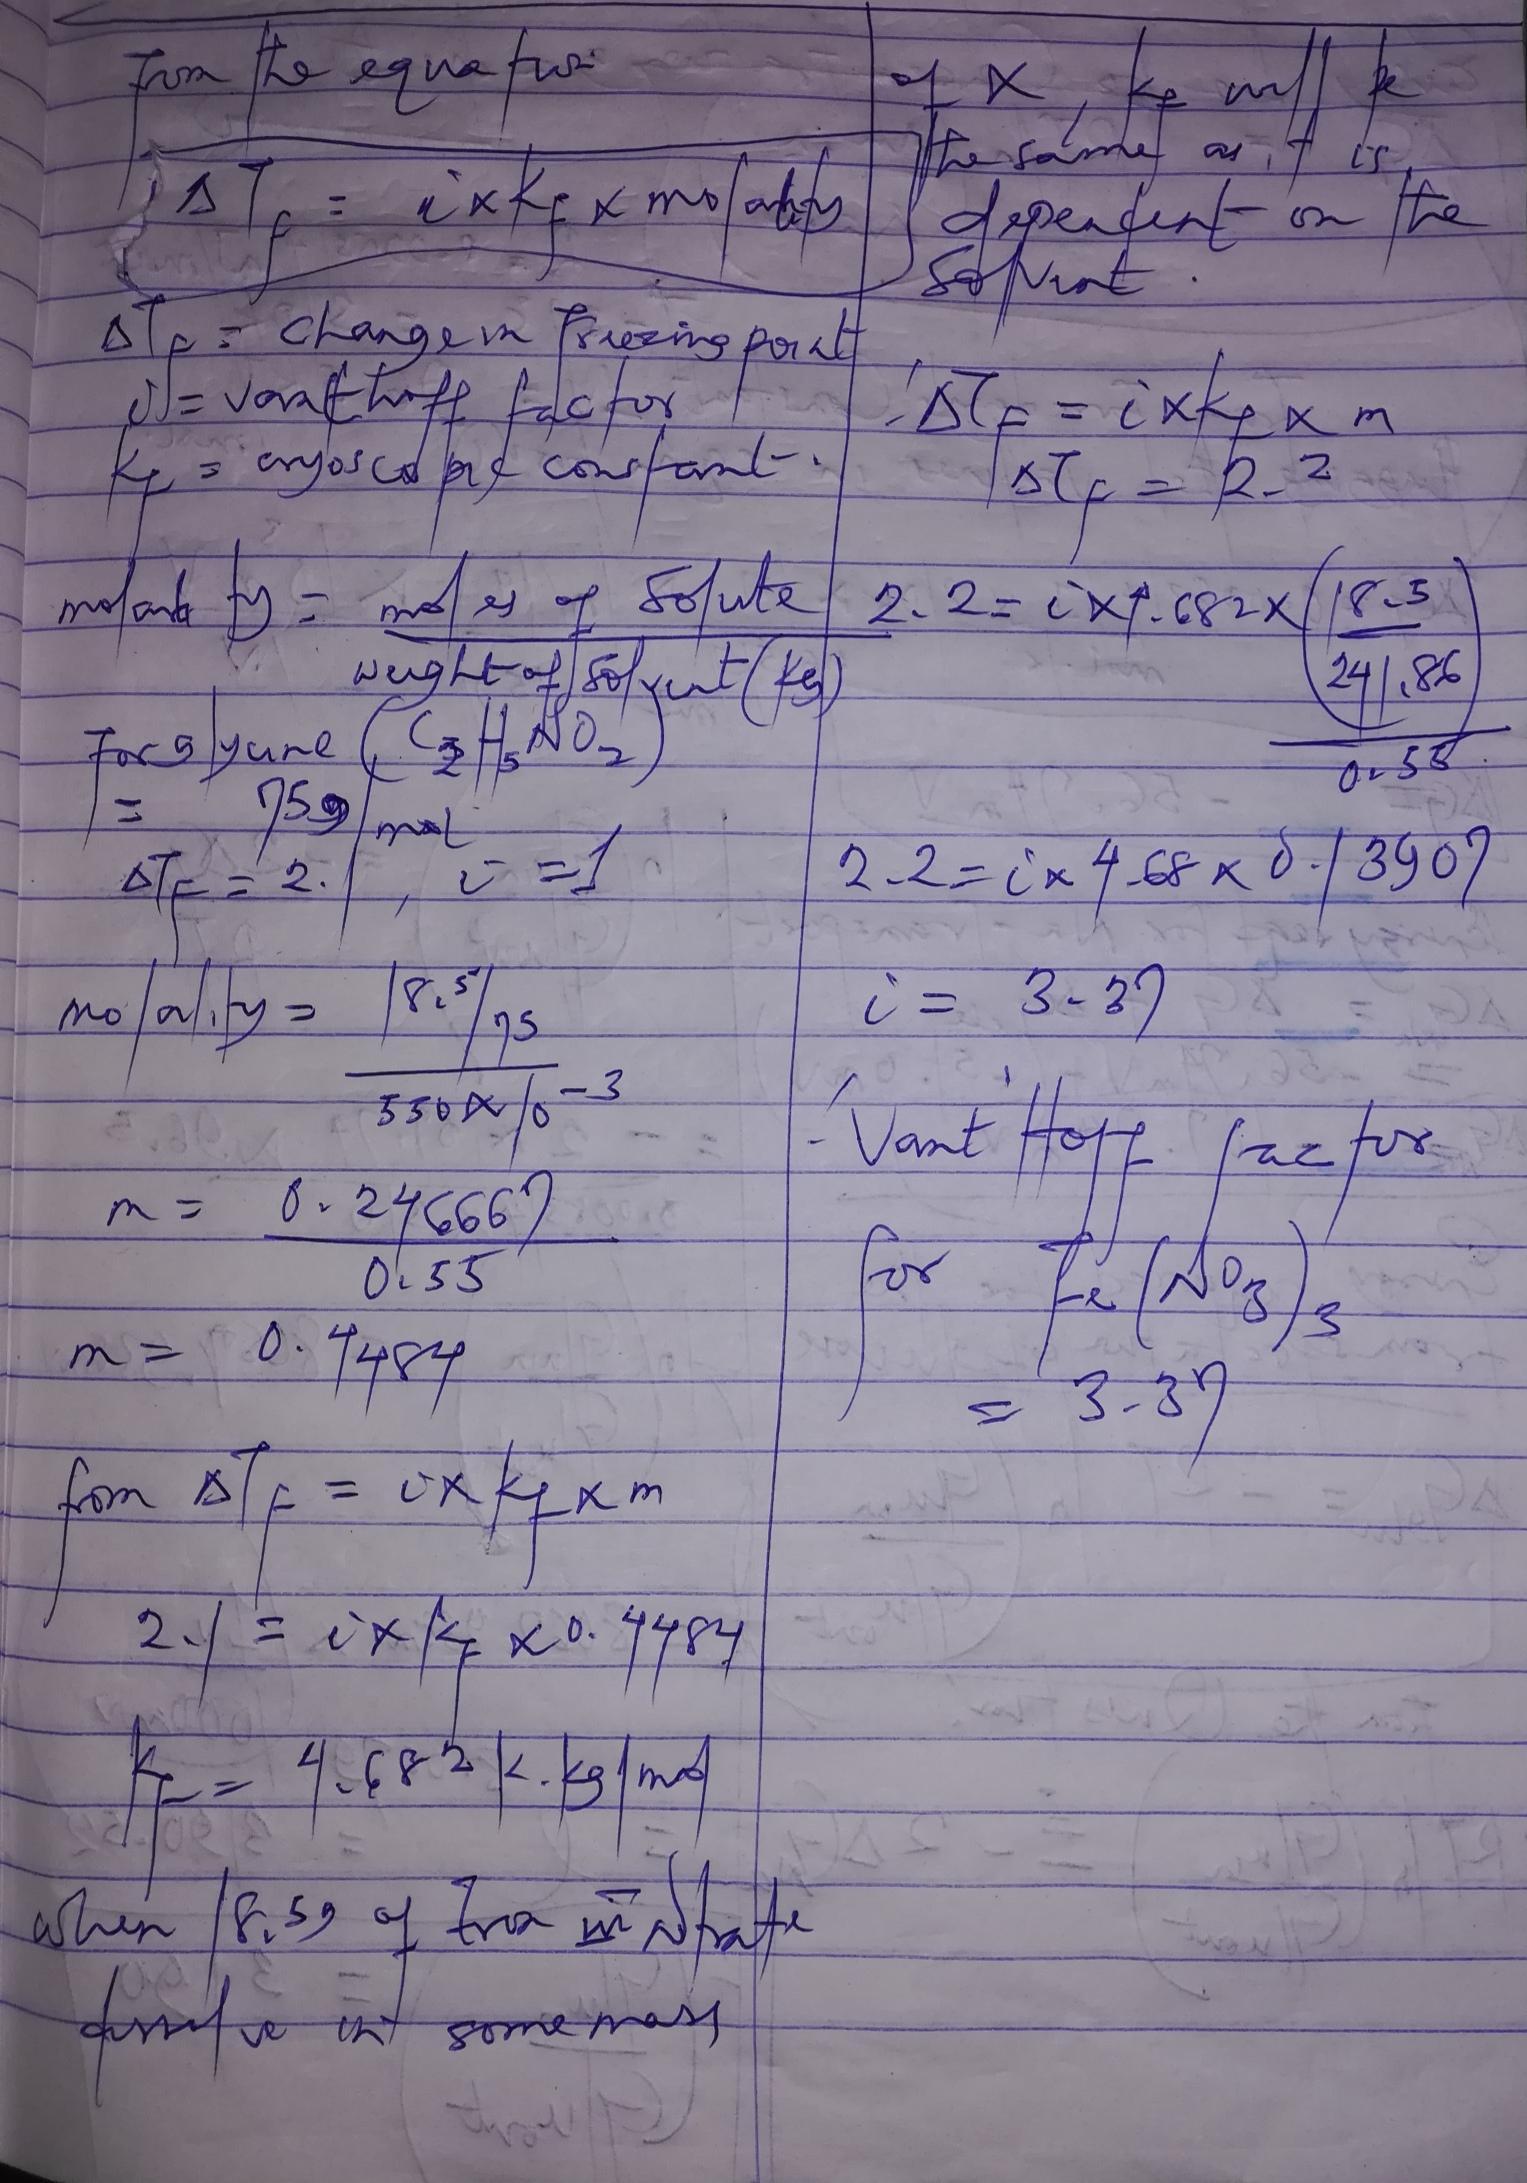 From the equation
ΔTf = i x kf x molality
ΔTf = change in Freezing point
i = vant hoff factor
kf = cryoscopic constant.
molality = moles of Solute
weight of Solvent (kg)
For glycine (C2H5NO2)
= 75g/mol
ΔTf = 2.1, i = 1
molality = 18.5/75
550 x 10^-3
m = 0.246667
0.55
m = 0.4484
from ΔTf = i x kf x m
2.1 = i x kf x 0.4484
kf = 4.682 k.kg/mol
when 18.5g of Iron III Nitrate
dissolve in same mass
of X, kf will be
the same as it is
dependent on the
Solvent.
ΔTf = i x kf x m
ΔTf = 2.2
2.2 = i x 4.682 x (18.5
241.86)
0.55
2.2 = i x 4.68 x 0.13907
i = 3.37
Vant Hoff factor
for Fe(NO3)3
= 3.37